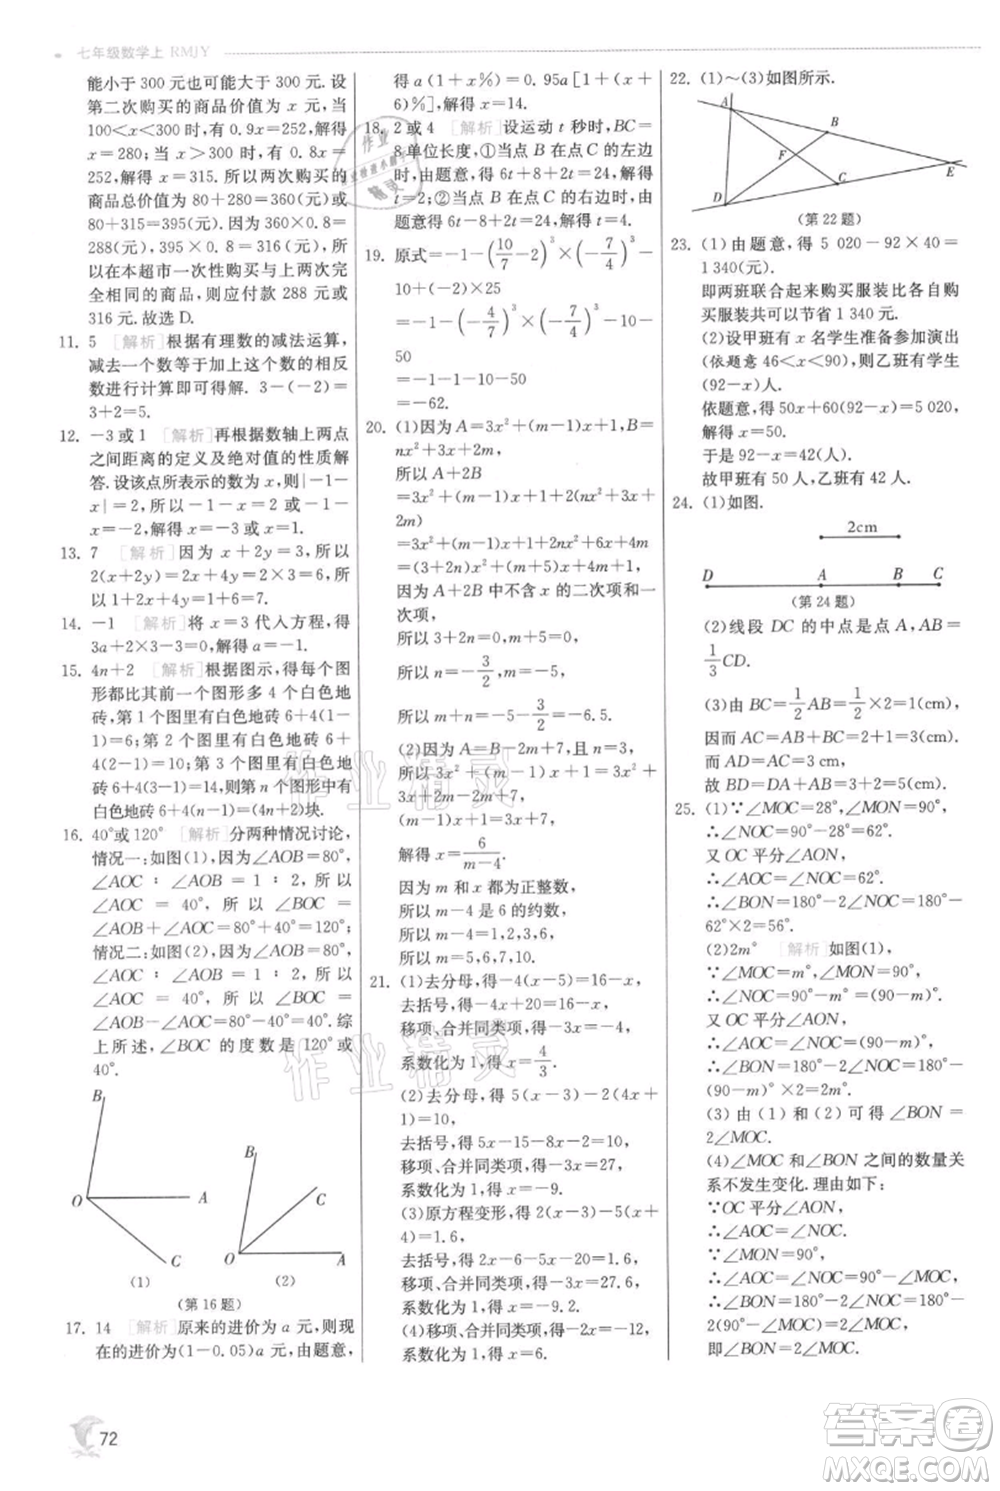 七年级数学上 RMJY
能小于 300 元也可能大于 300 元. 设
第二次购买的商品价值为 x 元, 当
100<x<300 时, 有 0.9x=252, 解得
x=280; 当 x>300 时, 有 0.8x=
252, 解得 x=315. 所以两次购买的
商品总价值为 80+280=360(元) 或
80+315=395(元). 360×0.8=
288(元), 395×0.8=316(元). 所
以在本超市一次性购买与上两次完
全相同的商品, 则应付款 288 元或
316 元. 故选 D.
11. 5 [解析]根据有理数的减法运算,
减去一个数等于加上这个数的相反
数进行计算即可得解. 3-(-2)=
3+2=5.
12. -3 或 1 [解析]再根据数轴上两点
之间距离的定义及绝对值的性质解
答. 设该点所表示的数为 x, 则|-1-
x|=2, 所以-1-x=2 或-1-
x=-2, 解得 x=-3 或 x=1.
13. 7 [解析]因为 x+2y=3, 所以
2(x+2y)=2x+4y=2×3=6, 所
以 1+2x+4y=1+6=7.
14. -1 [解析]将 x=3 代入方程, 得
3a+2×3-3=0, 解得 a=-1.
15. 4n+2 [解析]根据图示, 得每个图
形都比其前一个图形多 4 个白色地
砖, 第 1 个图里有白色地砖 6+4(1-
1)=6(块), 第 2 个图里有白色地砖
6+4(2-1)=10(块), 第 3 个图里
有白色地砖 6+4(3-1)=
14(块), ……, 则第 n 个图形中有
白色地砖 6+4(n-1)=(4n+2)块.
16. 40°或 120° [解析]分两种情况讨论,
情况一:如图(1), 因为∠AOB=80°,
∠AOC∶∠AOB=1∶2, 所以
∠AOC=40°, 所以∠BOC=
∠AOB+∠AOC=80°+40°=120°;
情况二:如图(2), 因为∠AOB=80°,
∠AOC∶∠AOB=1∶2, 所以
∠AOC=40°, 所以∠BOC=
∠AOB-∠AOC=80°-40°=40°. 综
上所述, ∠BOC 的度数是 120°或
40°.
B
O
A
C
(1)
B
C
O
A
(2)
(第 16 题)
17. 14 [解析]原来的进价为 a 元, 则现
在的进价为(1-0.05)a 元, 由题意,
72
得 a(1+x%)=0.95a[1+(x+
6)%], 解得 x=14.
18. 2 或 4 [解析]设运动 t 秒时, BC=
8 单位长度, ①当点 B 在点 C 的左
边时, 由题意, 得 6t+8+2t=24, 解得
t=2; ②当点 B 在点 C 的右边时, 由
题意得 6t-8+2t=24, 解得 t=4.
19. 原式=-1-(10/7-2)³×(-7/4)³-
10+(-2)×25
=-1-(-4/7)³×(-7/4)³-10-
50
=-1-1-10-50
=-62.
20. (1)因为 A=3x²+(m-1)x+1, B=
nx²+3x+2m,
所以 A+2B
=3x²+(m-1)x+1+2(nx²+3x+
2m)
=3x²+(m-1)x+1+2nx²+6x+
4m
=(3+2n)x²+(m-1+6)x+
1+4m.
因为 A+2B 中不含 x 的二次项和
一次项,
所以 3+2n=0, m-1+6=0,
所以 n=-3/2, m=-5,
所以 m+n=-5-3/2=-6.5.
(2)因为 A=B-5m+7n,
所以 3x²+(m-1)x+1=3x²+3x+
2m-5m+7,
(m-1)x+1=3x-3m+7,
解得 x=6/(m-4)...
因为 m 和 x 都为正整数,
所以 m-4 是 6 的约数,
所以 m-4=1,2,3,6,
所以 m=5,6,7,10.
21. (1)去分母, 得-4(x-5)=16-x,
去括号, 得-4x+20=16-x,
移项、合并同类项, 得-3x=-4,
系数化成 1, 得 x=4/3.
(2)去分母, 得 5(x-3)-2(4x+
1)=10,
去括号, 得 5x-15-8x-2=10,
移项、合并同类项, 得-3x=27,
系数化成 1, 得 x=-9.
(3)原方程变形, 得 2(x-3)-5(x+
4)=1.6,
去括号, 得 2x-6-5x-20=1.6,
移项、合并同类项, 得-3x=27.6,
系数化成 1, 得 x=-9.2.
(4)移项、合并同类项, 得 2x=12,
系数化成 1, 得 x=6.
22. (1)~(3)如图所示.
A
B
F
D
C
E
(第 22 题)
23. (1)由题意, 得 5 020-92×40=
1 340(元).
即两班联合起来购买服装比各自购
买服装共可以节省 1 340 元.
(2)设甲班有 x 名学生准备参加演出
(依题意 46<x<90), 则乙班有学生
(92-x)人.
依题意, 得 50x+60(92-x)=5 020,
解得 x=50.
于是 92-x=42(人).
故甲班有 50 人, 乙班有 42 人.
24. (1)如图.
2cm
D
A
B
C
(第 24 题)
(2)线段 DC 的中点是点 A, AB=
1/3 CD.
(3)由 BC=1/2 AB=1/2×2=1,
因而 AC=AB+BC=2+1=3.
而 AD=AC=3,
故 BD=DA+AB=3+2=5.
25. (1)∵∠MOC=28°, ∠MON=90°,
∴∠NOC=90°-28°=62°.
又 OC 平分∠AON,
∴∠AOC=∠NOC=62°.
∴∠BON=180°-2∠NOC=180°-
62°×2=56°.
(2)2m° [解析]如图(1),
∵∠MOC=m°, ∠MON=90°,
∴∠NOC=90°-m°=(90-m)°.
又 OC 平分∠AON,
∴∠AOC=∠NOC=(90-m)°.
∴∠BON=180°-2∠NOC=180°-
2(90-m)°×2=2m°.
(3)由(1)和(2)可得∠BON=
2∠MOC.
(4)∠MOC 和∠BON 之间的数量关
系不发生变化. 理由如下:
∵OC 平分∠AON,
∴∠AOC=∠NOC.
∵∠MON=90°,
∴∠AOC=∠NOC=90°-∠MOC.
∴∠BON=180°-2∠NOC=180°-
2(90°-∠MOC)=2∠MOC,
即∠BON=2∠MOC.
作业精灵
作业精灵
答案圈
MXQE.COM